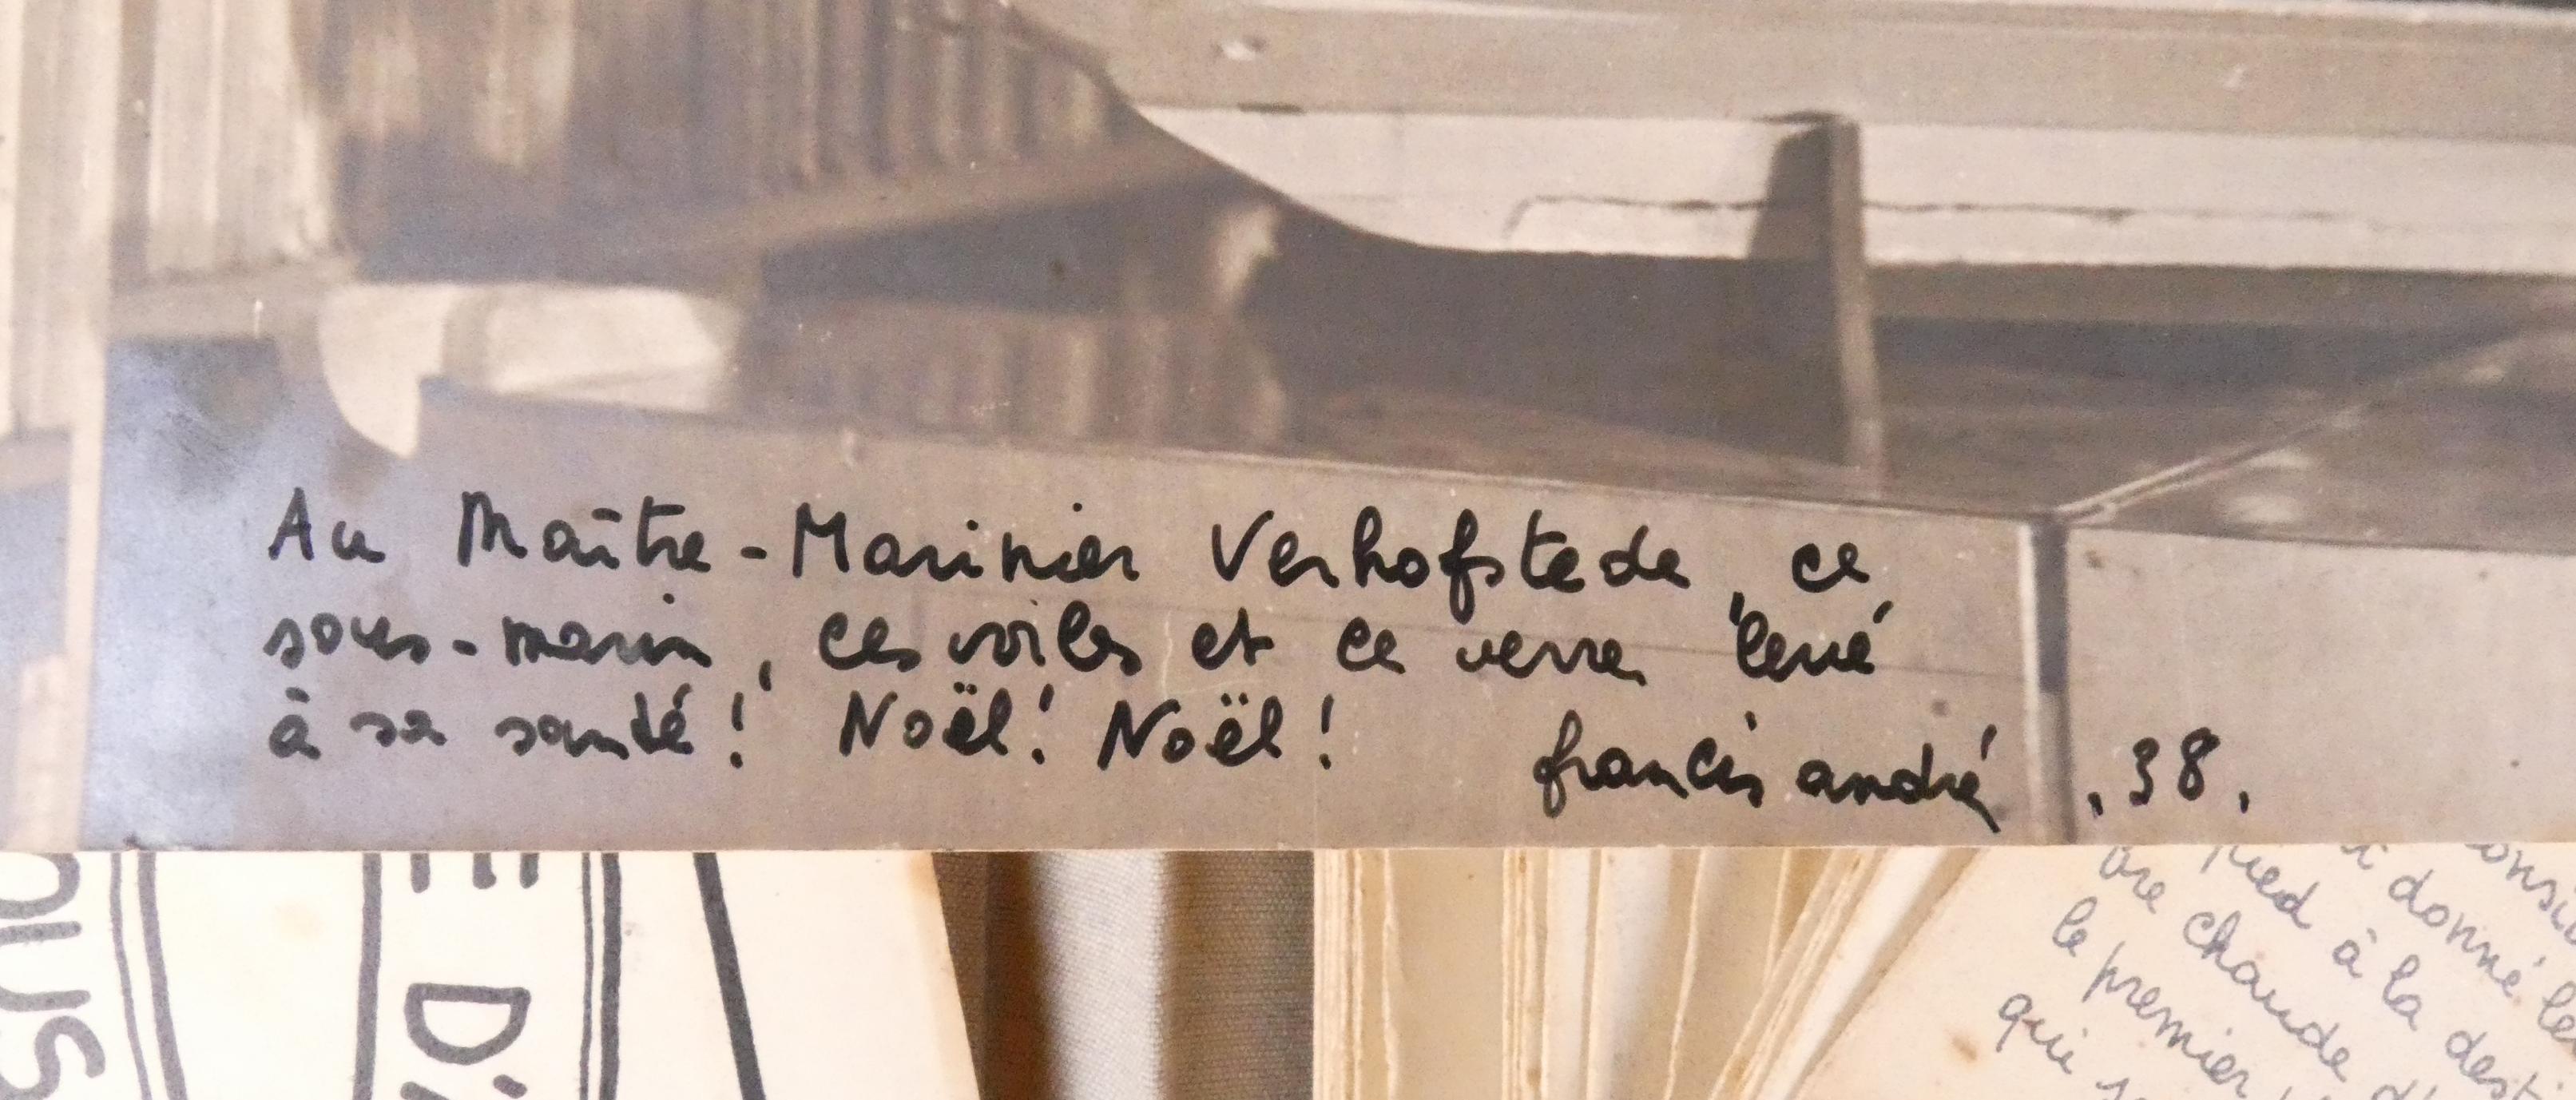 Au Maître-Marinier Verhofstede, ce
sous-marin, ces voiles et ce verre levé
à sa santé! Noël! Noël!
francis andré .38.
E D'
ous
donné
pied à la
chaude
le premier
qui